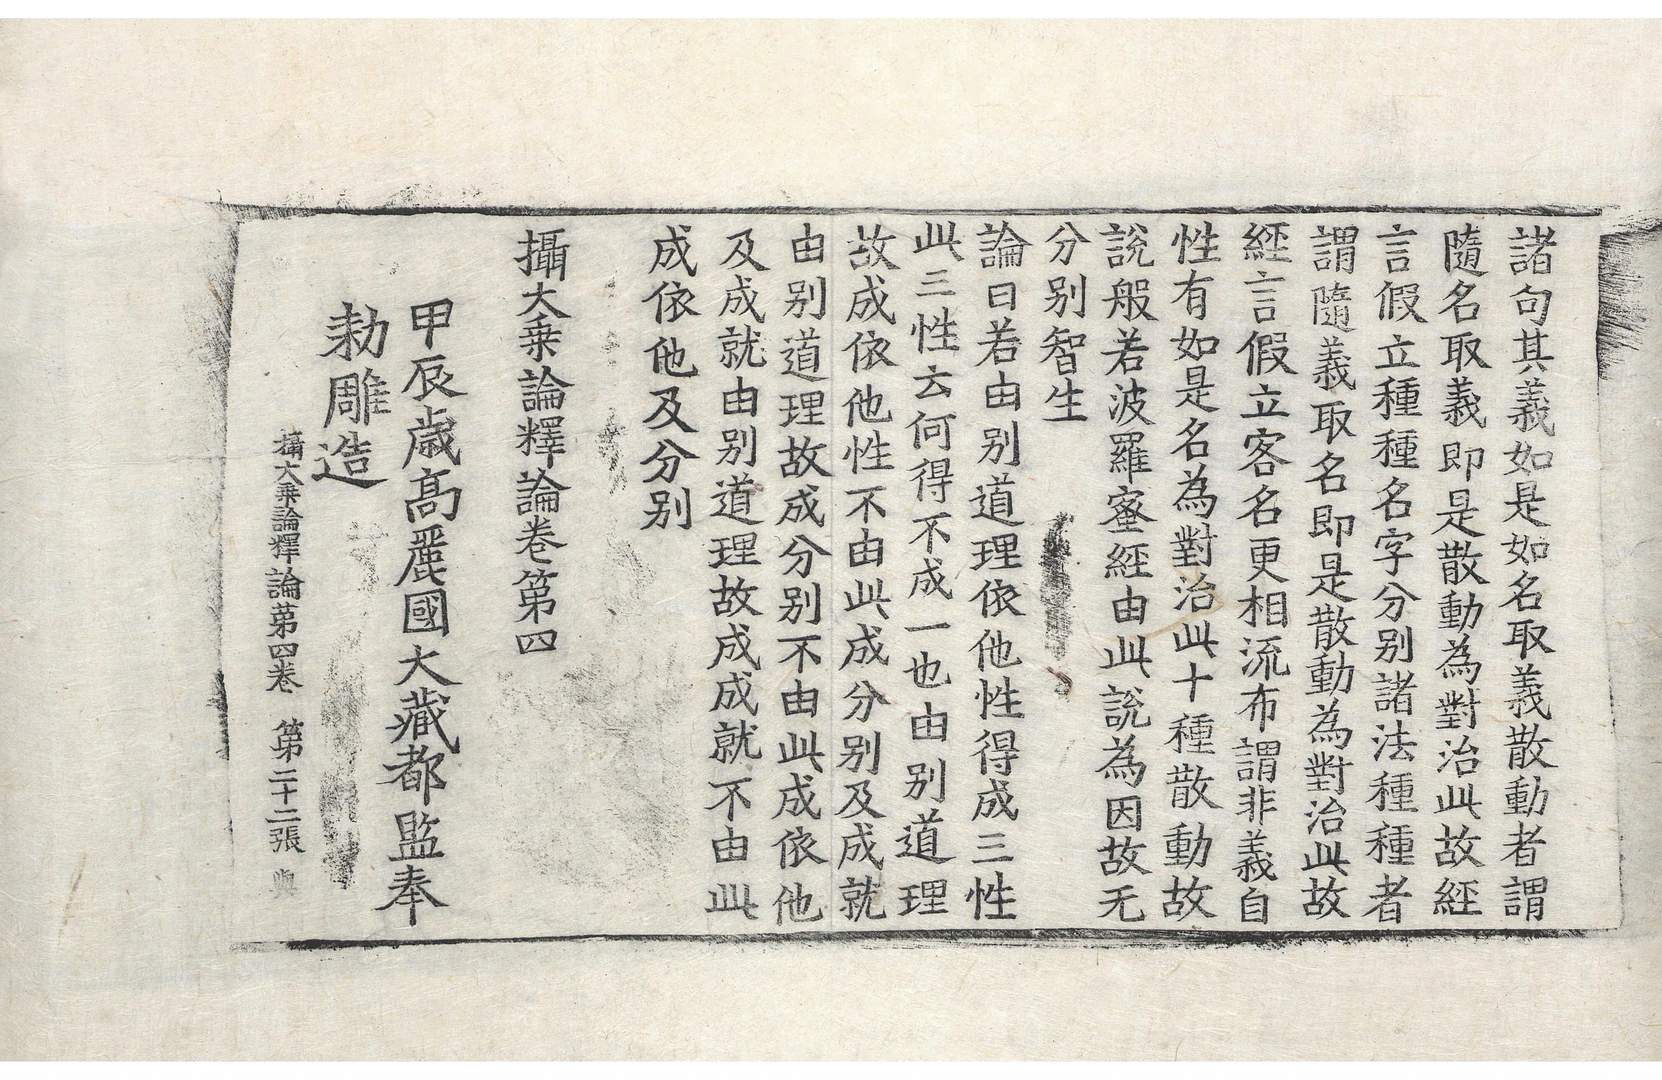 諸句其義如是如名取義散動者謂
隨名取義即是散動為對治此故經
言假立種種名字分別諸法種種者
謂隨義取名即是散動為對治此故
經言假立客名更相流布謂非義自
性有如是名為對治此十種散動故
說般若波羅蜜經由此說為因故无
分別智生
論曰若由別道理依他性得成三性
此三性云何得不成一也由別道理
故成依他性不由此成分別及成就
由別道理故成分別不由此成依他
及成就由別道理故成成就不由此
成依他及分別
攝大乗論釋論卷第四
甲辰歳高麗國大藏都監奉
勑雕造
攝大乗論釋論第四卷 第二十二張 與